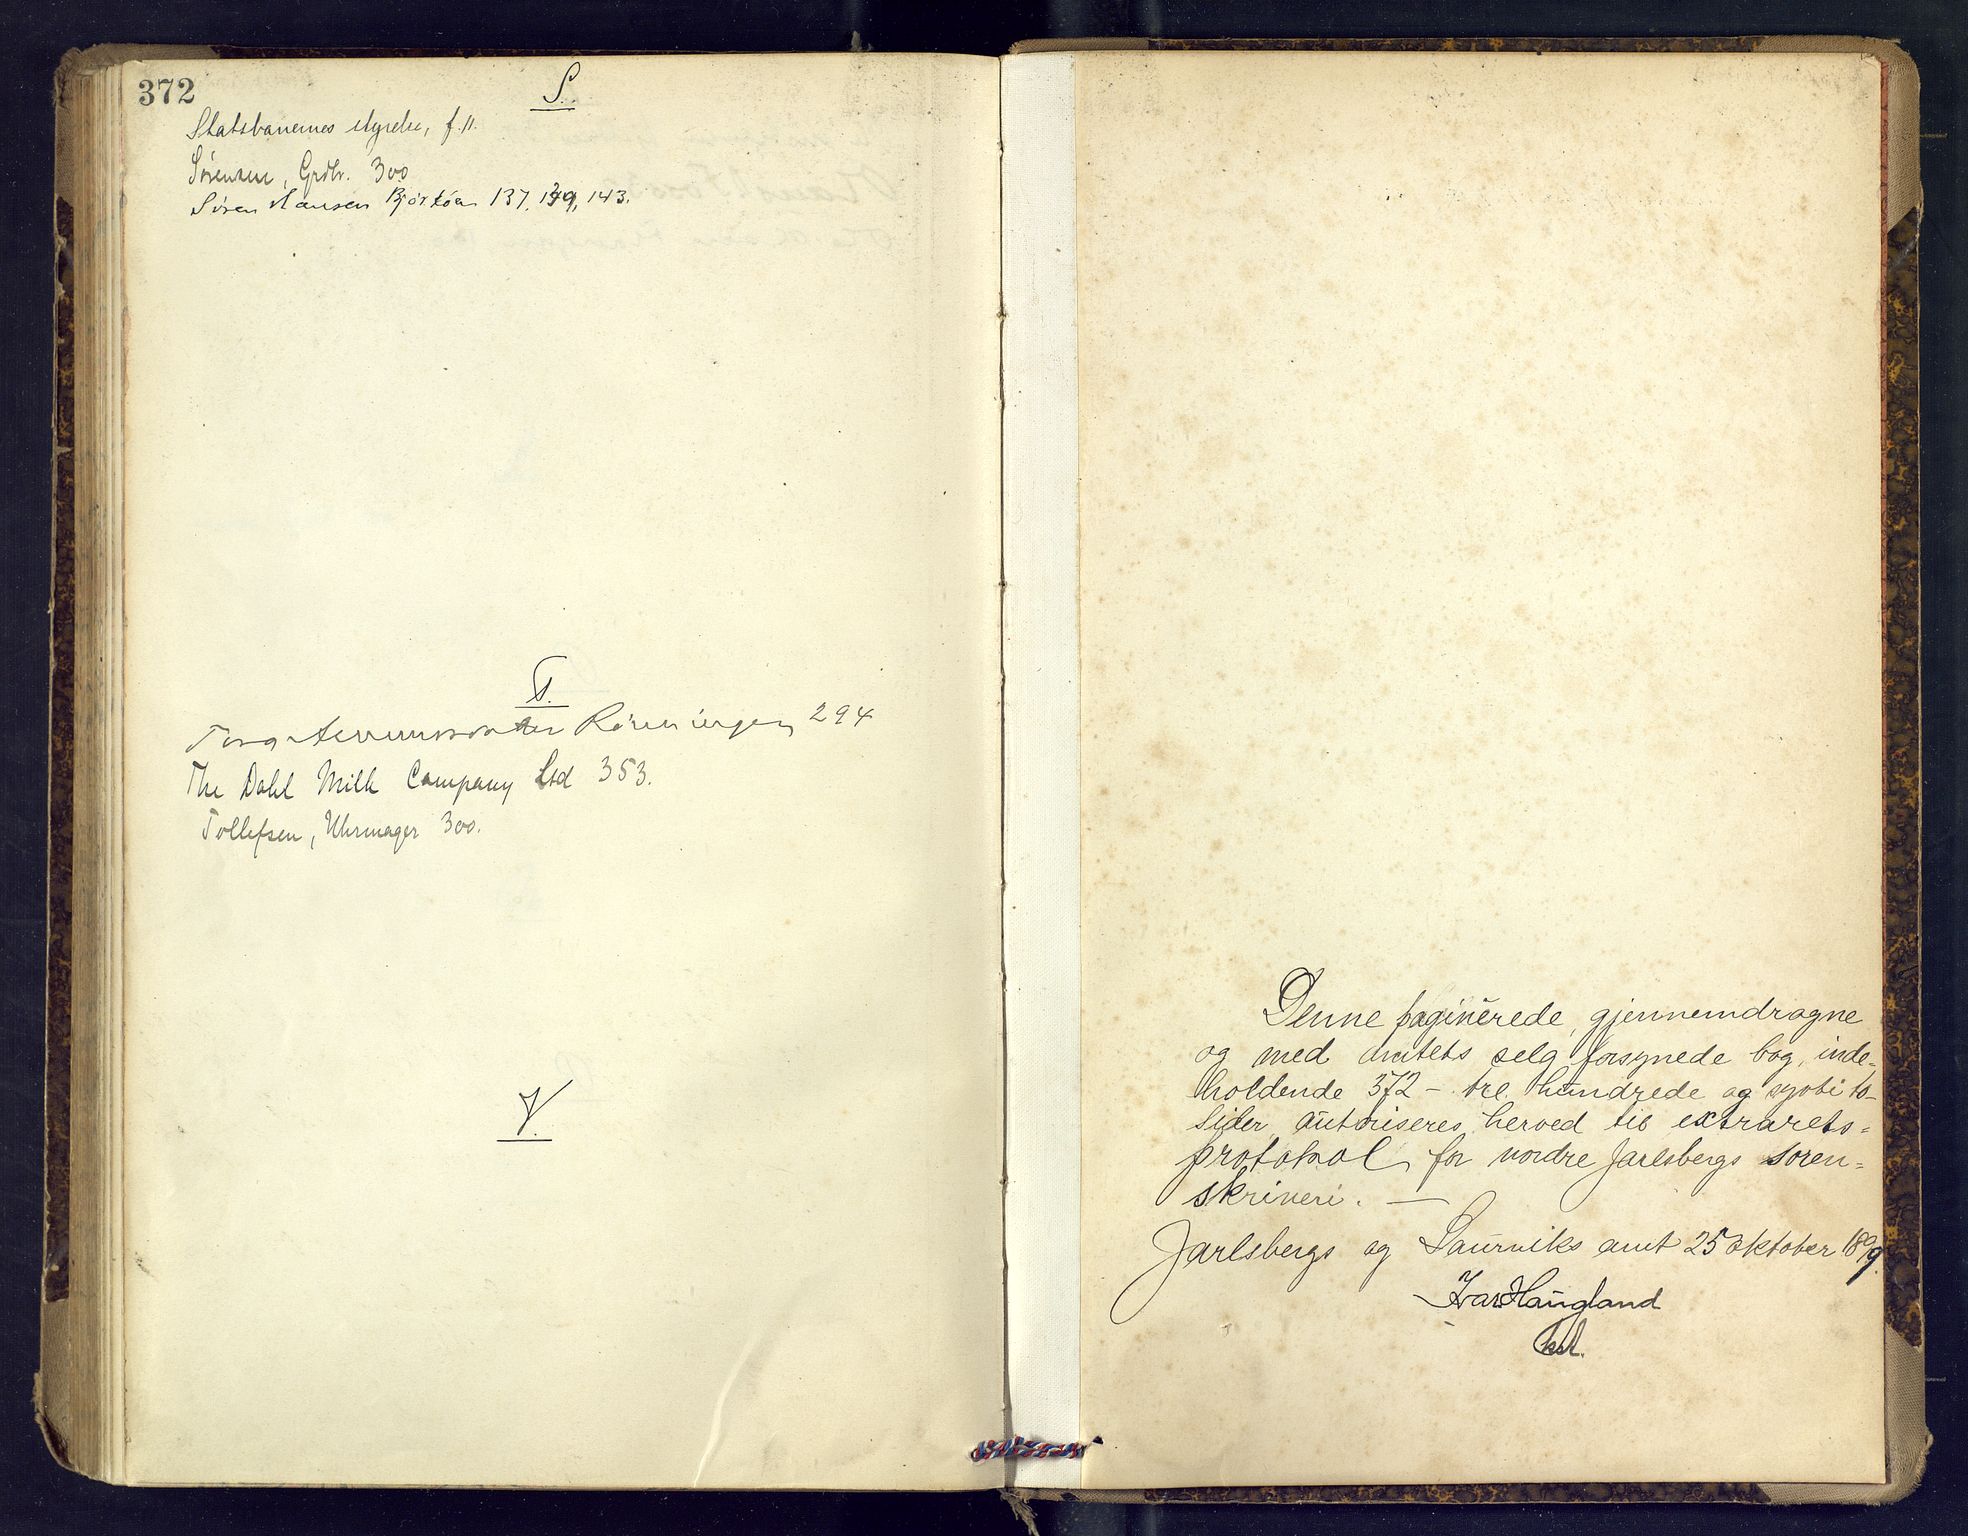 372
S.
Statsbanernes styrelse, f. 11.
Sørensen, Grdbr. 300
Søren Hansen Bjerkøen 137, 139, 143.
T.
Røren 294
The Dahl Milk Company Ltd 353.
Tollefsen, Uhrmager 300.
V.
Denne paginerede, gjennemdragne
og med amtets selg forsynede bog, inde-
holdende 372 - tre hundrede og sytti to -
sider autoriseres herved til extrarets-
protokol for nordre Jarlsbergs soren-
skriveri. —
Jarlsbergs og Laurviks amt 25 oktober 1899.
Ivar Haugland
kst.